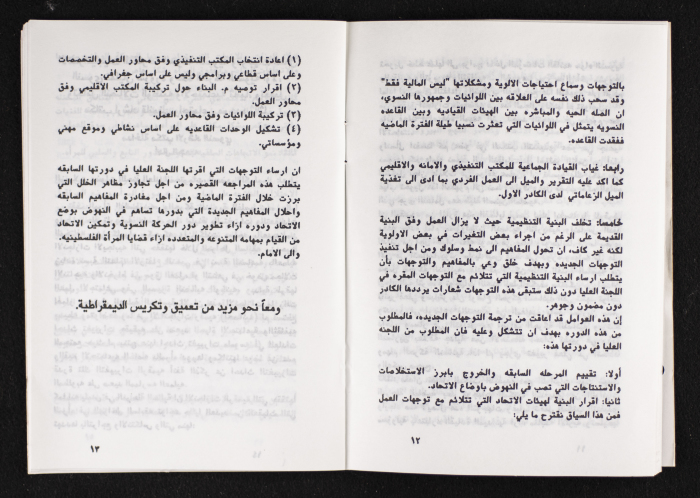 بالتوجهات وسماع احتياجات الالوية ومشكلاتها "ليس المالية فقط"
وقد سحب ذلك نفسه على العلاقه بين اللوائيات وجمهورها النسوي،
ان الصله الحيه والمباشره بين الهيئات القياديه وبين القاعده
النسويه يتمثل في اللوائيات التي تعثرت نسبيا طيلة الفترة الماضيه
ففقدت القاعده.
رابعها: غياب القيادة الجماعية للمكتب التنفيذي والامانه والاقليمي
كما اكد عليه التقرير والميل الى العمل الفردي بما ادى الى تغذية
الميل الزعاماتي لدى الكادر الاول.
خامسا: تخلف البنية التنظيمية حيث لا يزال العمل وفق البنية
القديمة على الرغم من اجراء بعض التغيرات في بعض الاولوية
لكنه غير كاف، ان تحول المفاهيم الى نمط وسلوك ومن اجل تنفيذ
التوجهات الجديده وبهدف خلق وعي بالمفاهيم والتوجهات بأن
يتطلب ارساء البنية التنظيمية التي تتلائم مع التوجهات المقره في
اللجنة العليا دون ذلك ستبقى هذه التوجهات شعارات يرددها الكادر
دون مضمون وجوهر.
إن هذه العوامل قد اعاقت من ترجمة التوجهات الجديده، فالمطلوب
من هذه الدوره بهدف ان تتشكل وعليه فان المطلوب من اللجنه
العليا في دورتها هذه:
أولا: تقييم المرحله السابقه والخروج بابرز الاستخلاصات
والاستنتاجات التي تصب في النهوض باوضاع الاتحاد.
ثانيا: اقرار البنية لهيئات الاتحاد التي تتلائم مع توجهات العمل
فمن هذا السياق نقترح ما يلي:
١٢
(١) اعادة انتخاب المكتب التنفيذي وفق محاور العمل والتخصصات
وعلى اساس قطاعي وبرامجي وليس على اساس جغرافي.
(٢) اقرار توصيه م. البناء حول تركيبة المكتب الاقليمي وفق
محاور العمل.
(٣) تركيبة اللوائيات وفق محاور العمل.
(٤) تشكيل الوحدات القاعديه على اساس نشاطي وموقع مهني
ومؤسساتي.
ان ارساء التوجهات التي اقرتها اللجنة العليا في دورتها السابقه
يتطلب هذه المراجعه القصيره من اجل تجاوز مظاهر الخلل التي
برزت خلال الفترة الماضية ومن اجل مغادرة المفاهيم السابقه
واحلال المفاهيم الجديدة التي بدورها تساهم في النهوض بوضع
الاتحاد ودوره ازاء تطوير دور الحركة النسوية وتمكين الاتحاد
من القيام بمهامه المتنوعه والمتعدده ازاء قضايا المرأة الفلسطينيه.
والى الامام.
ومعاً نحو مزيد من تعميق وتكريس الديمقراطية.
١٣